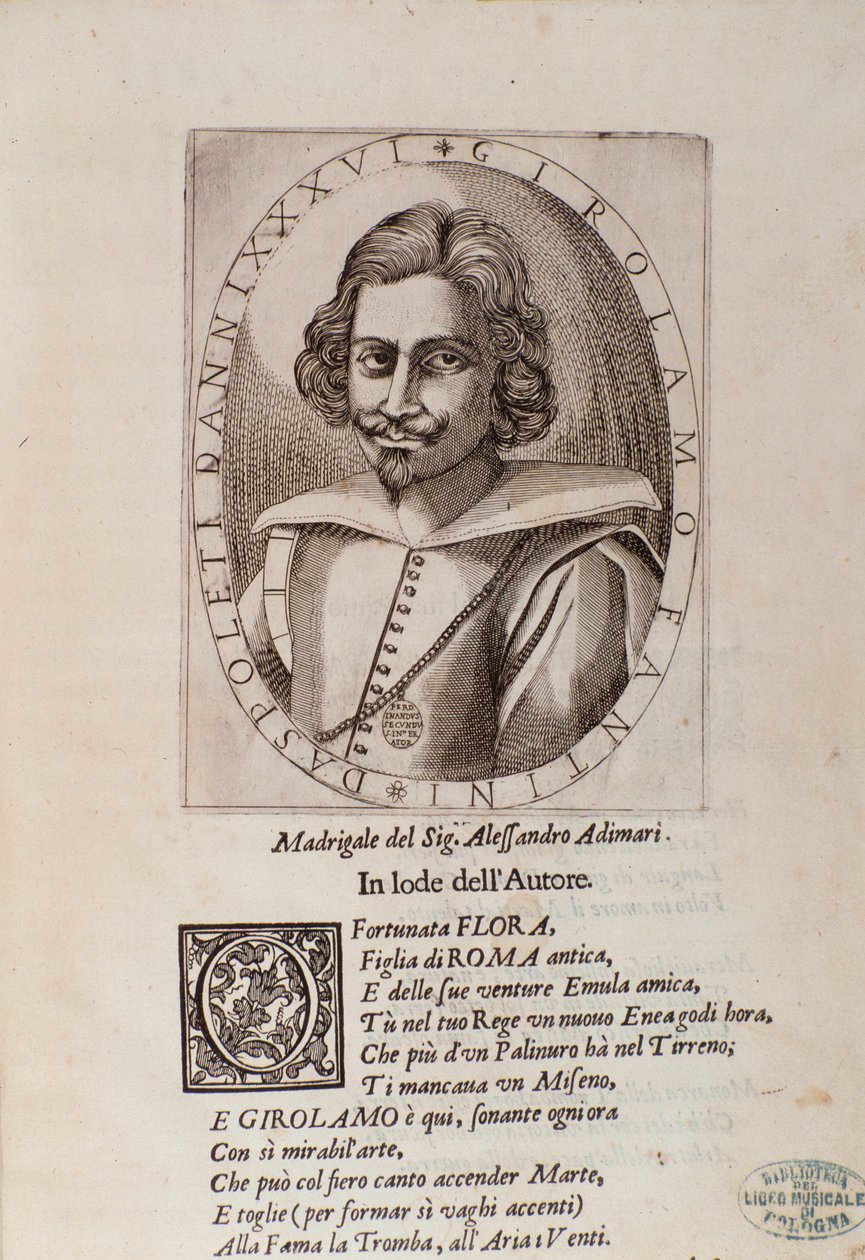 GIROLAMO FANTINI DASPOLETI DANNI XXXXVI
FERD
INANDVS
SECVNDV
S.IMP ER
ATOR
Madrigale del Sig. Aleſſandro Adimari.
In lode dell'Autore.
O Fortunata FLORA,
Figlia di ROMA antica,
E delle ſue venture Emula amica,
Tù nel tuo Rege vn nuouo Enea godi hora,
Che più d'vn Palinuro hà nel Tirreno;
Ti mancaua vn Miſeno,
E GIROLAMO è qui, ſonante ogni ora
Con sì mirabil'arte,
Che può col fiero canto accender Marte,
E toglie (per formar sì vaghi accenti)
Alla Fama la Tromba, all'Aria i Venti.
BIBLIOTECA
DEL
LICEO MUSICALE
DI
BOLOGNA